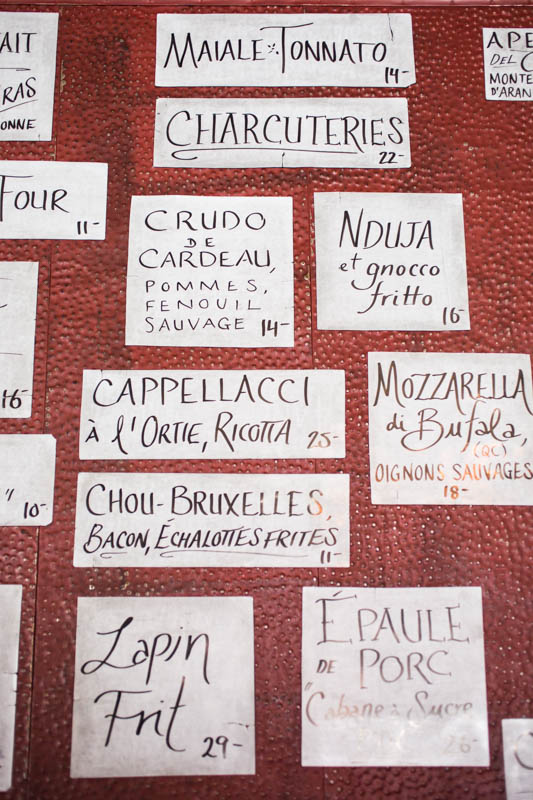 AIT
RAS
ONNE
MAIALE TONNATO
14-
APE
DEL
MONTE
D'ARAN
CHARCUTERIES
22-
FOUR
11-
CRUDO
DE
CARDEAU,
POMMES,
FENOUIL
SAUVAGE 14-
NDUJA
et gnocco
fritto
16-
16
CAPPELLACCI
à l'ORTIE, RICOTTA 25-
MOZZARELLA
di Bufala,
(QC)
OIGNONS SAUVAGES
18-
" 10-
CHOU-BRUXELLES,
BACON, ÉCHALOTTES FRITES
11-
Lapin
Frit
29-
ÉPAULE
DE PORC
"Cabane à Sucre
26-